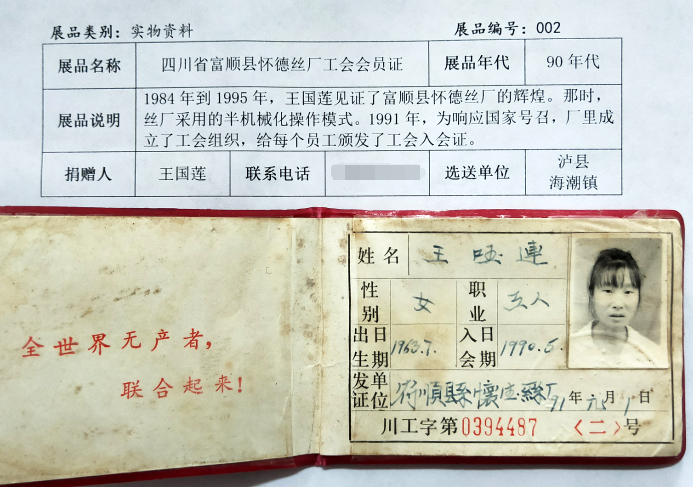 展品类别：实物资料 展品编号：002
展品名称 四川省富顺县怀德丝厂工会会员证 展品年代 90年代
展品说明 1984年到1995年，王国莲见证了富顺县怀德丝厂的辉煌。那时，
丝厂采用的半机械化操作模式。1991年，为响应国家号召，厂里成
立了工会组织，给每个员工颁发了工会入会证。
捐赠人 王国莲 联系电话 选送单位 泸县
海潮镇
全世界无产者，
联合起来！
姓名 王 連
性别 女 职业 工人
出生日期 1963.7. 入会日期 1990.5.
发证单位 順縣懷 絲厂 91年 月1日
川工字第0394487〈二〉号